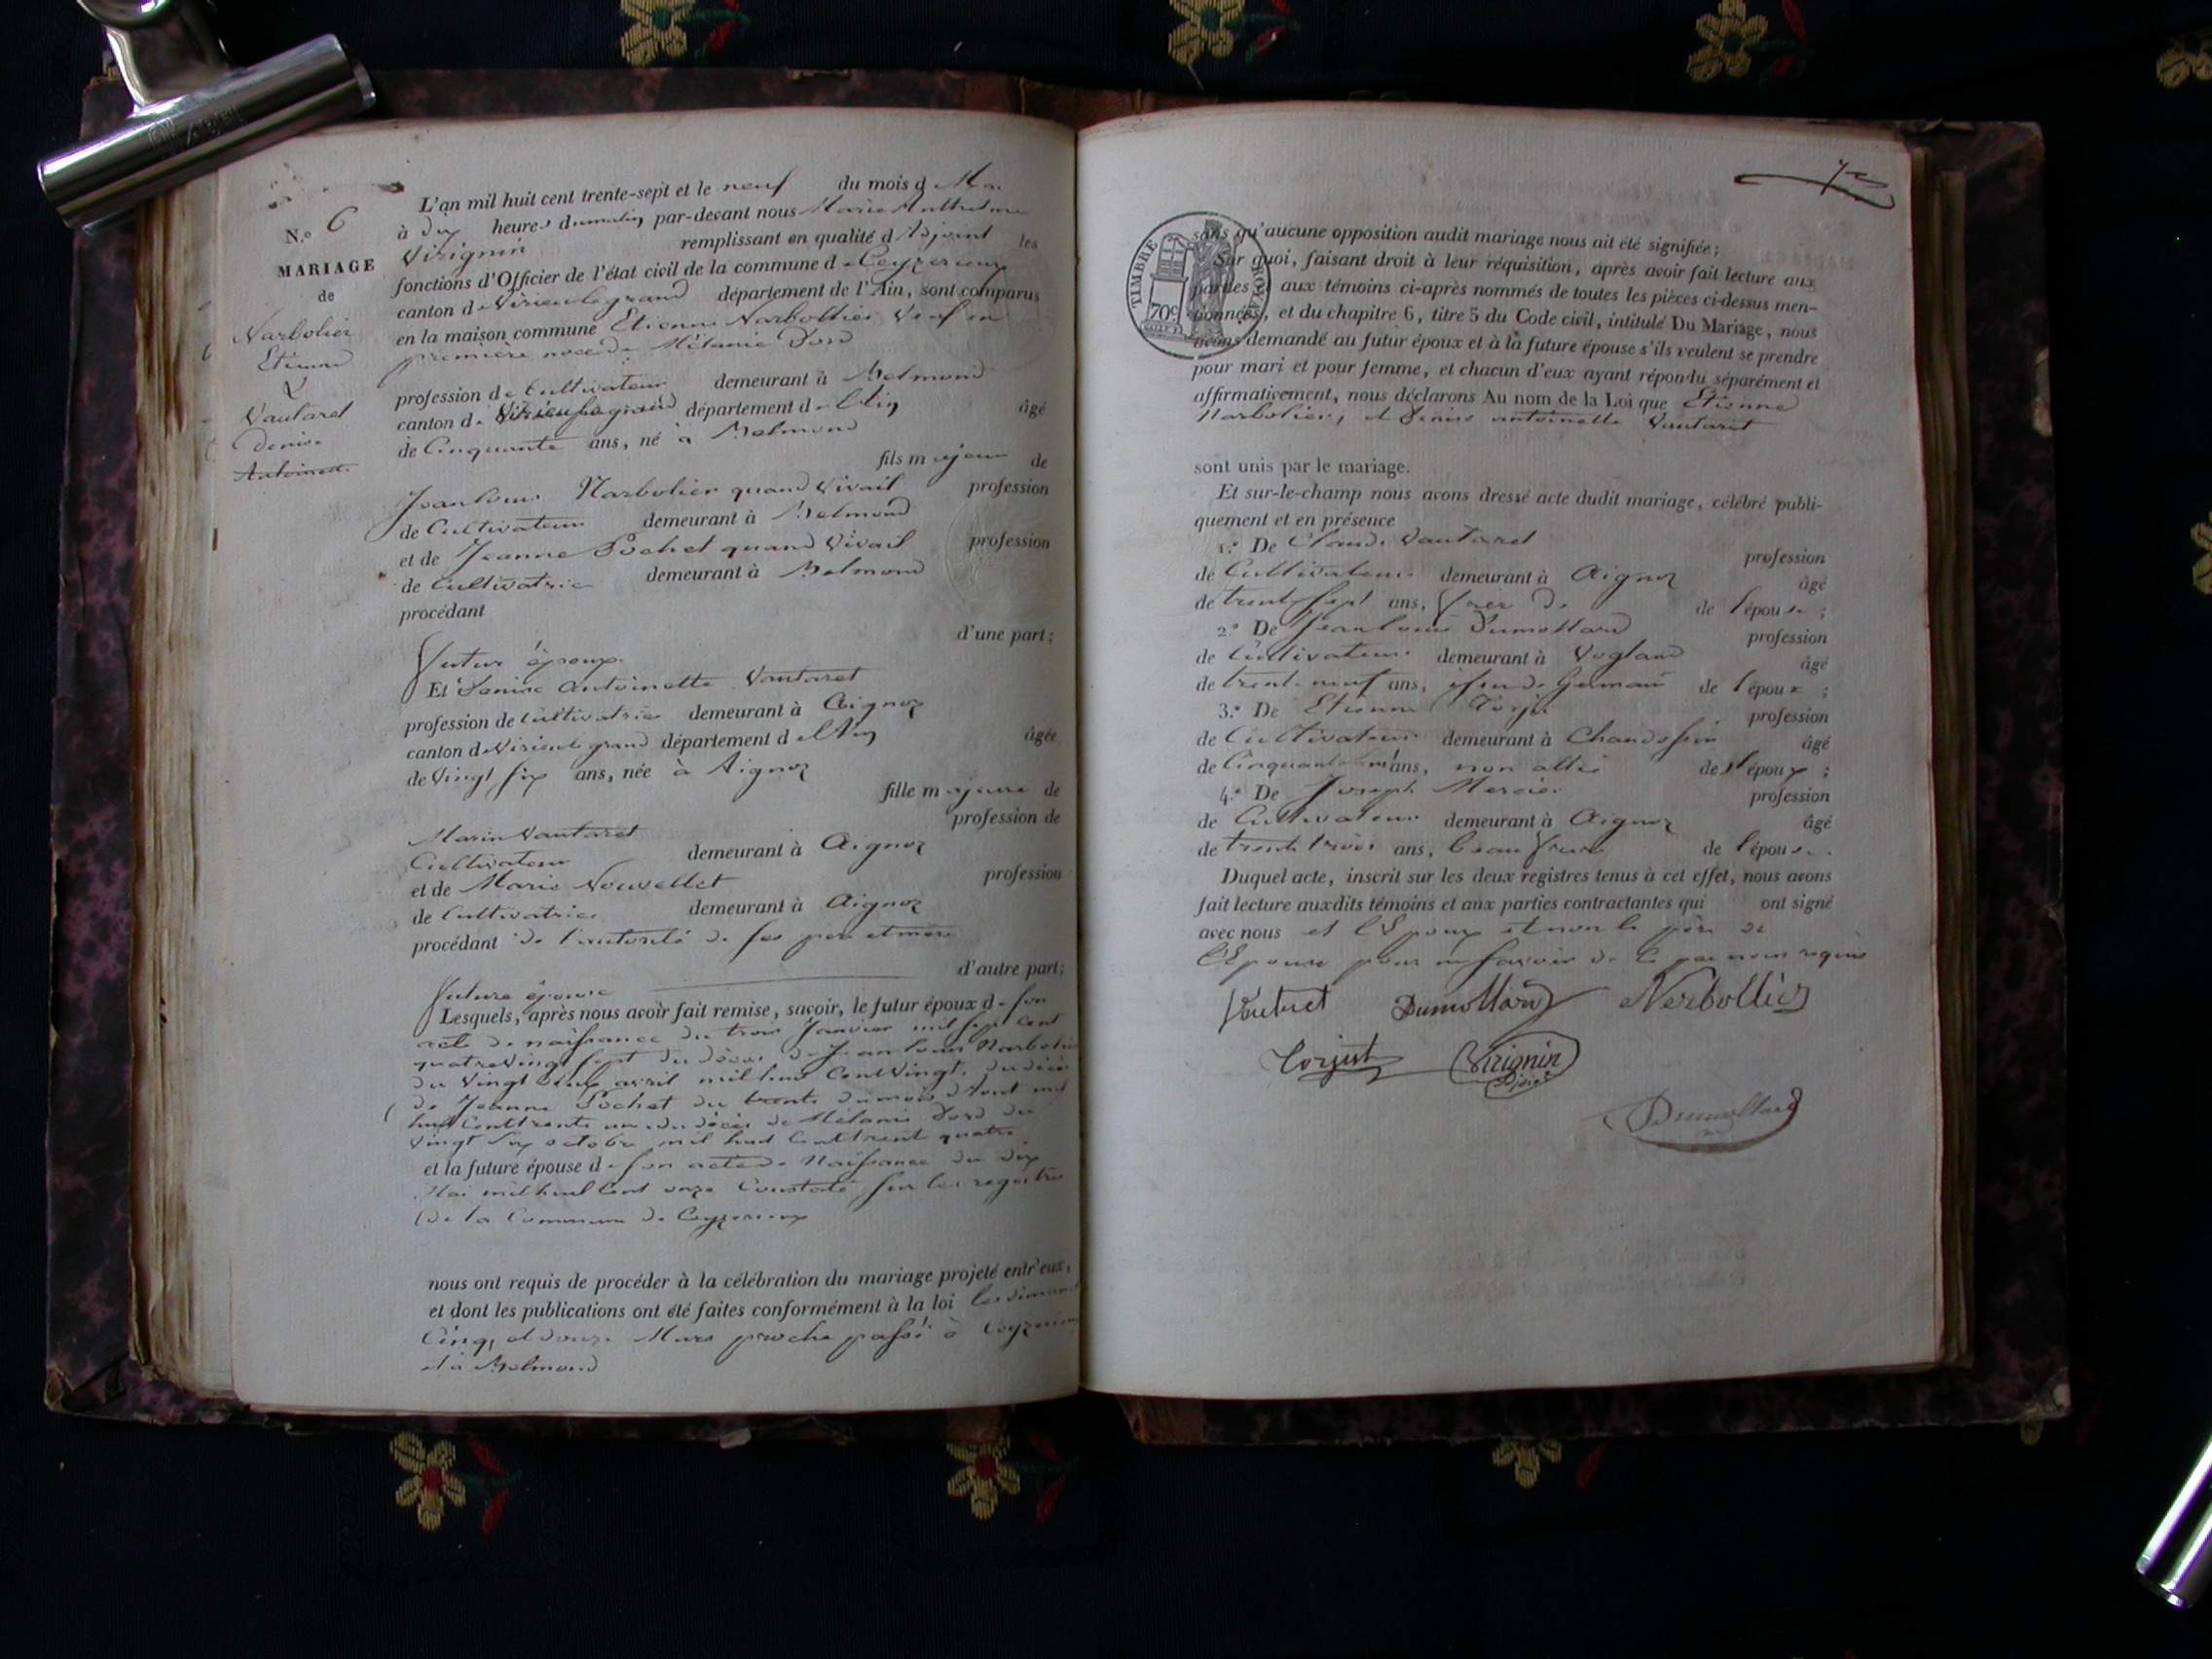 N.º 6
MARIAGE
de
Narbolier
Etienne
&
Vautaret
Denise
Antoinette
L'an mil huit cent trente-sept et le neuf du mois d
à dix heures du matin, par-devant nous Marie Anthelme
Virignin remplissant en qualité d'Adjoint les
fonctions d'Officier de l'état civil de la commune de Ceyzerieux
canton de Virieu le grand département de l'Ain, sont comparus
en la maison commune Etienne Narbollier Veuf en
première noce de Mélanie Dord
profession de Cultivateur demeurant à Belmond
canton de Virieu le grand département de l'Ain âgé
de Cinquante ans, né à Belmond
fils majeur de
Jean Louis Narbolier quand Vivait profession
de Cultivateur demeurant à Belmond
et de Jeanne Pochet quand Vivait profession
de Cultivatrice demeurant à Belmond
procédant
d'une part;
futur époux
Et Denise Antoinette Vautaret
profession de Cultivatrice demeurant à Aignoz
canton de Virieu le grand département de l'Ain âgée
de Vingt six ans, née à Aignoz
fille majeure de
Marin Vautaret profession de
Cultivateur demeurant à Aignoz
et de Marie Nouvellet profession
de Cultivatrice demeurant à Aignoz
procédant de l'autorité de ses père et mère
d'autre part;
future épouse
Lesquels, après nous avoir fait remise, savoir, le futur époux de son
acte de naissance du trois Janvier mil sept cent
quatre Vingt sept du décès de Jean Louis Narbolier
du Vingt avril mil huit Cent Vingt, du décès
de Jeanne Pochet du trente du mois d'Aout mil
huit Cent trente un du décès de Mélanie Dord du
Vingt six octobre mil huit Cent trente quatre
et la future épouse de son acte de Naissance du dix
Mai mil huit Cent onze Constaté sur les registres
de la Commune de Ceyzerieux
nous ont requis de procéder à la célébration du mariage projeté entr'eux,
et dont les publications ont été faites conformément à la loi les dimanches
Cinq, et douze Mars proche passé à Ceyzerieux
et à Belmond
TIMBRE ROYAL
70c
sans qu'aucune opposition audit mariage nous ait été signifiée;
Sur quoi, faisant droit à leur réquisition, après avoir fait lecture aux
parties et aux témoins ci-après nommés de toutes les pièces ci-dessus men-
tionnées, et du chapitre 6, titre 5 du Code civil, intitulé Du Mariage, nous
avons demandé au futur époux et à la future épouse s'ils veulent se prendre
pour mari et pour femme, et chacun d'eux ayant répondu séparément et
affirmativement, nous déclarons Au nom de la Loi que Etienne
Narbolier, et Denise antoinette Vautaret
sont unis par le mariage.
Et sur-le-champ nous avons dressé acte dudit mariage, célébré publi-
quement et en présence
1.º De Claude Vautaret profession
de Cultivateur demeurant à Aignoz âgé
de trente sept ans, frère de de l'épouse;
2.º De Jean Louis Dumollard profession
de Cultivateur demeurant à Vogland âgé
de trente neuf ans, Germain de l'époux;
3.º De Etienne profession
de Cultivateur demeurant à Chandossin âgé
de Cinquante ans, non allié de l'époux;
4.º De Joseph Mercier profession
de Cultivateur demeurant à Aignoz âgé
de trente trois ans, beau frere de l'épouse.
Duquel acte, inscrit sur les deux registres tenus à cet effet, nous avons
fait lecture auxdits témoins et aux parties contractantes qui ont signé
avec nous et l'Epoux et non le père de
l'Epouse pour ne savoir de ce par nous requis
Vautaret Dumollard Narbollier
Torjut Virignin
Adjoint
Dumollard